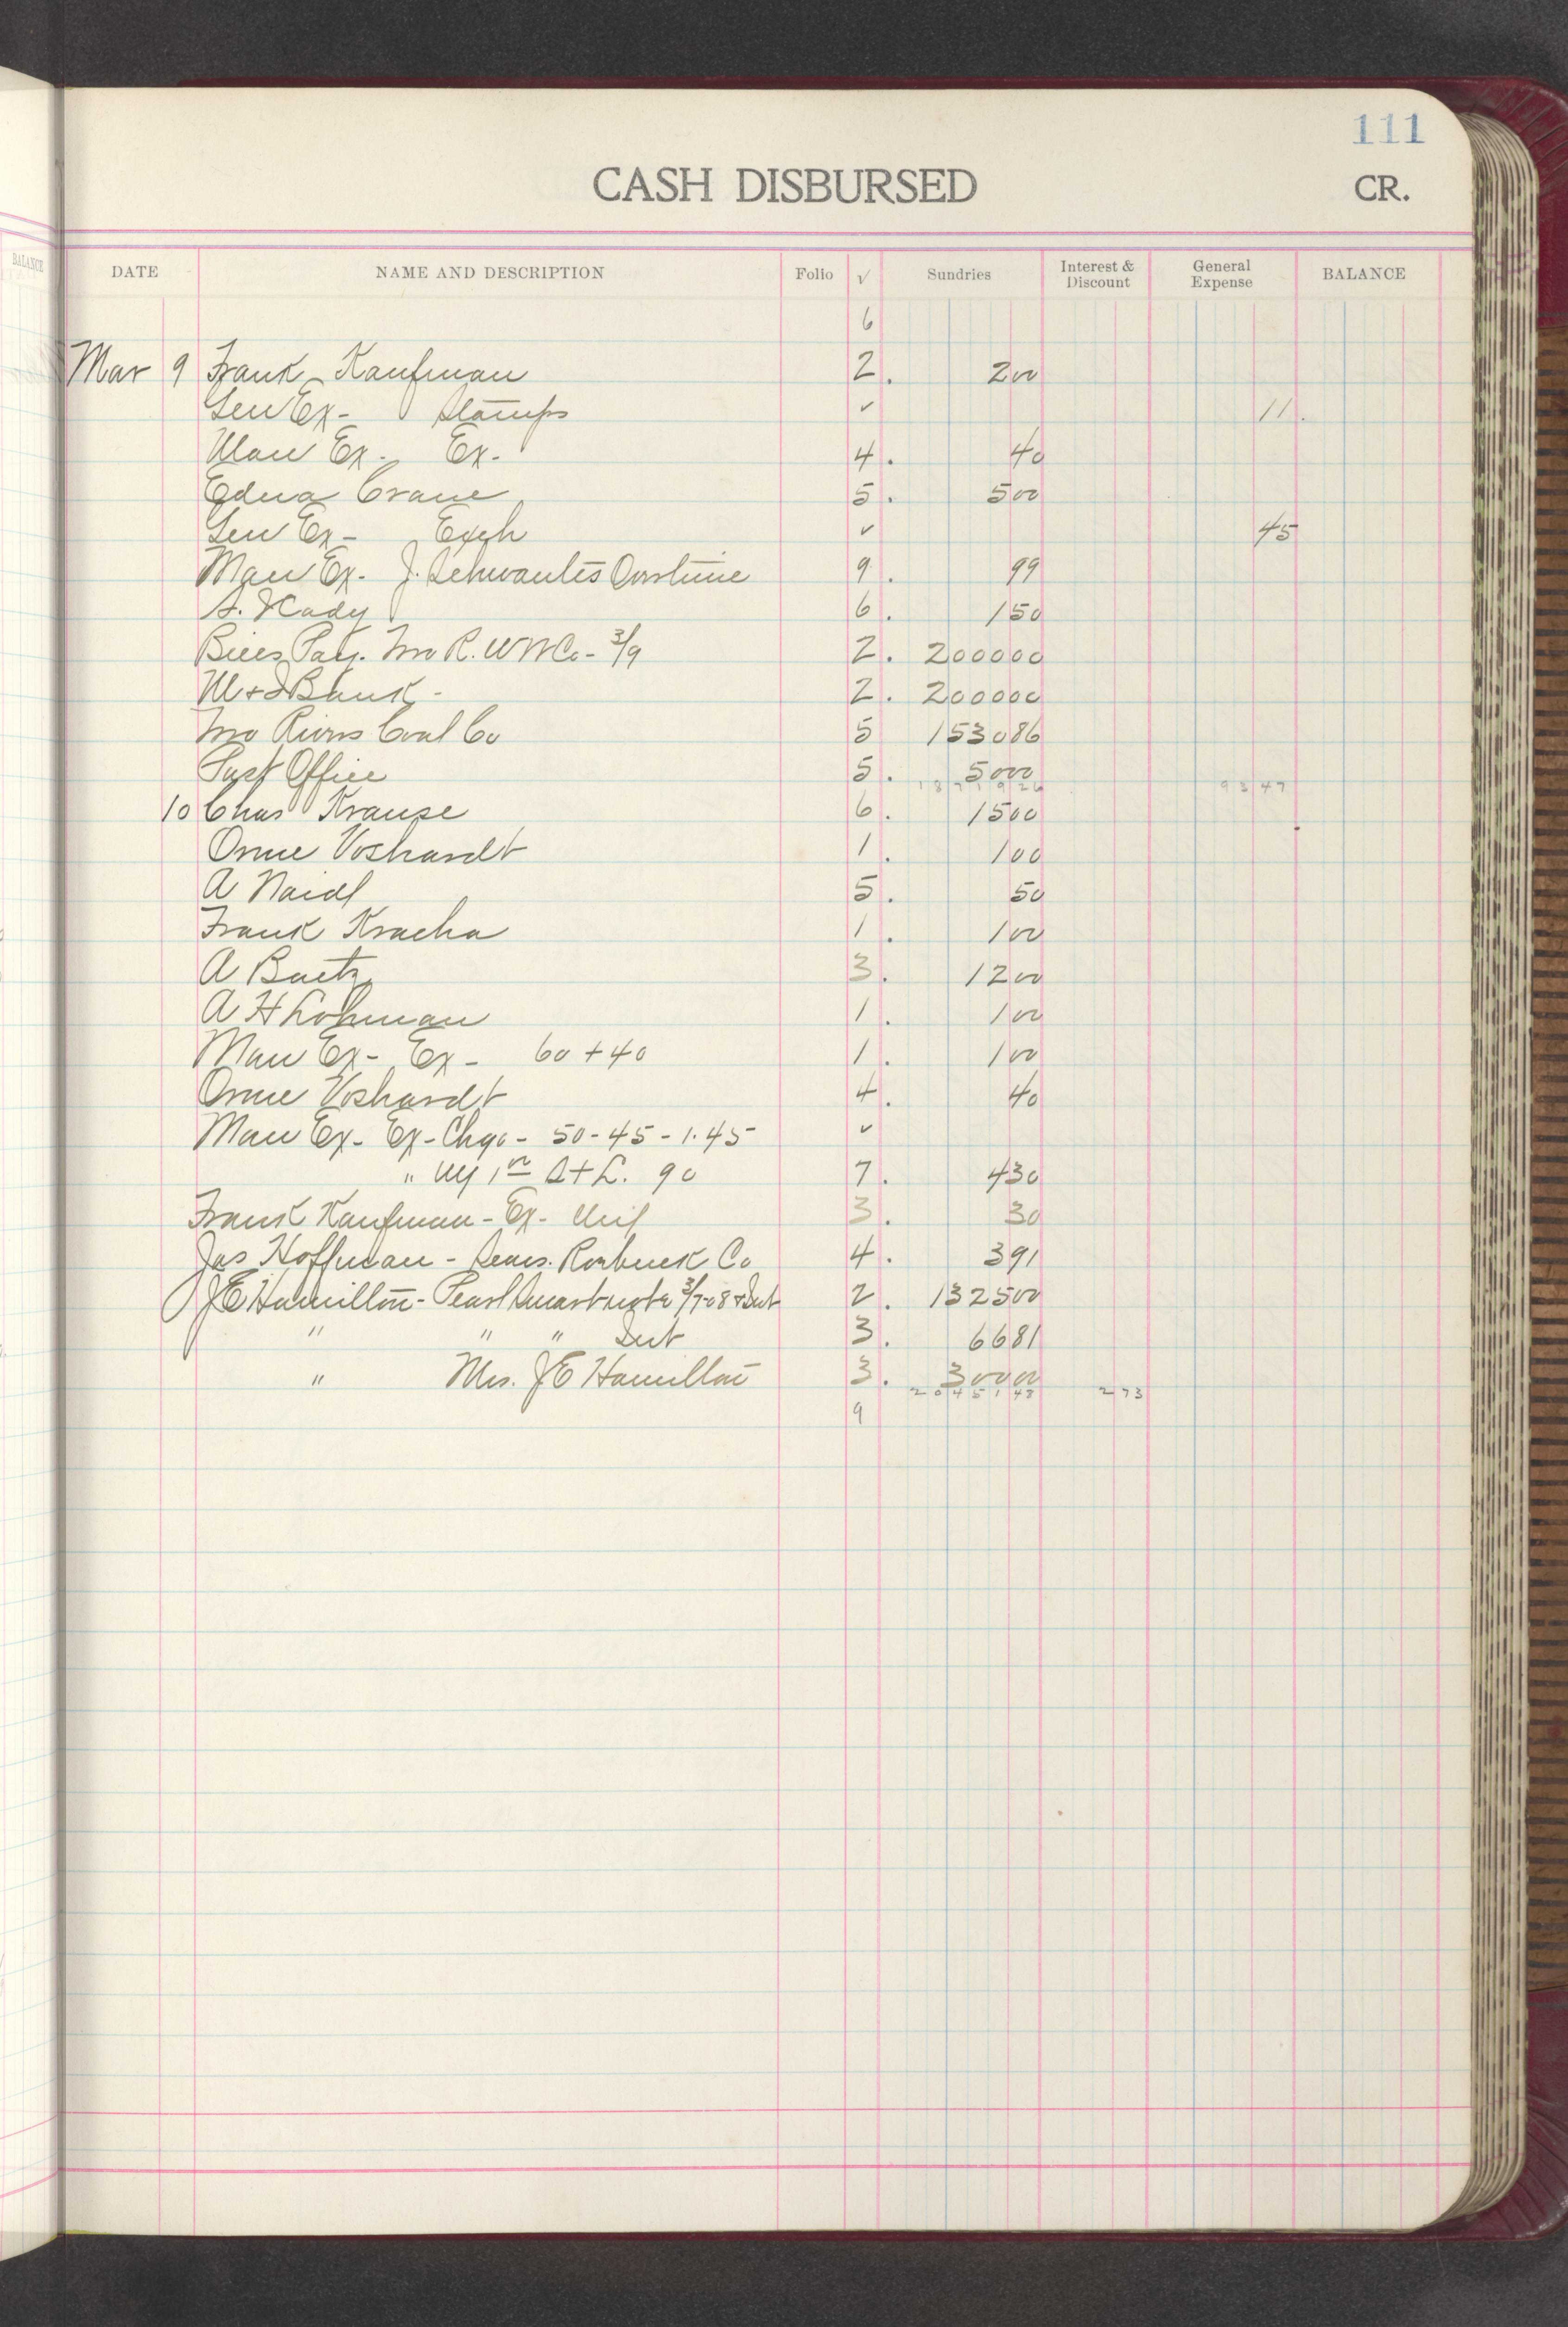 BALANCE
111
CASH DISBURSED CR.
DATE NAME AND DESCRIPTION Folio √ Sundries Interest & Discount General Expense BALANCE
6
Mar 9 Frank Kaufman 2. 200
Gen Ex - Stamps ✓ 11.
Man Ex - Ex - 4. 40
Edna Crane 5. 500
Gen Ex - Exch ✓ 45
Man Ex - J. Schwantes Overtime 9. 99
A. Kady 6. 150
Bills Pay. Two R. - 3/9 2. 200000
Bank - 2. 200000
Two Rivers Coal Co 5 153086
Post Office 5. 5000
1871926 9347
10 Chas Krause 6. 1500
Orme Voshardt 1. 100
A Naidl 5. 50
Frank Kracha 1. 100
A Baetz 3. 1200
A H Lohman 1. 100
Man Ex - Ex - 60 + 40 1. 100
Orme Voshardt 4. 40
Man Ex - Ex - Chgo - 50 - 45 - 1.45 ✓
" NY 90 7. 430
Frank Kaufman - Ex - Mil 3. 30
Jas Hoffman - Sears. Roebuck Co 4. 391
J E Hamilton - Pearl Smart note 3/7-08 + Int 2. 132500
" " " Int 3. 6681
" Mrs. J E Hamilton 3. 30000
2045148 273
9